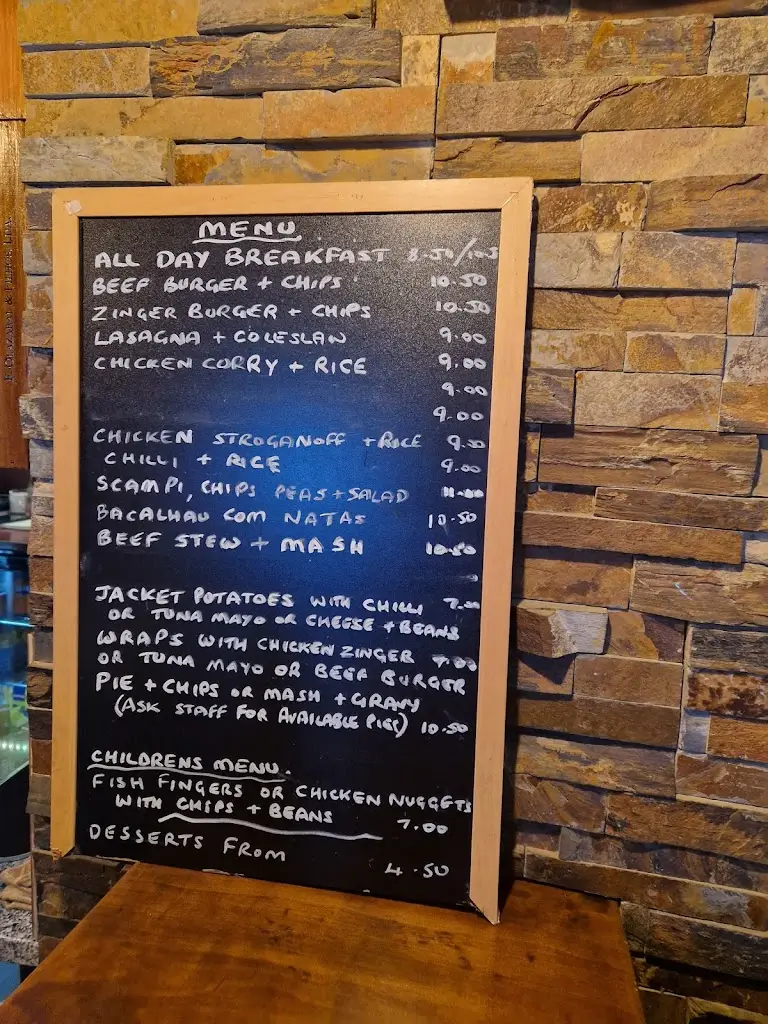 MENU
ALL DAY BREAKFAST 8.50/10.5
BEEF BURGER + CHIPS 10.50
ZINGER BURGER + CHIPS 10.50
LASAGNA + COLESLAW 9.00
CHICKEN CORRY + RICE 9.00
9.00
9.00
CHICKEN STROGANOFF + RICE
CHILLI + RICE 9.00
SCAMPI, CHIPS PEAS + SALAD
BACALHAU COM NATAS 10.50
BEEF STEW + MASH 10.50
JACKET POTATOES WITH CHILLI 7.00
OR TUNA MAYO OR CHEESE + BEANS
WRAPS WITH CHICKEN ZINGER 7.00
OR TUNA MAYO OR BEEF BURGER
PIE + CHIPS OR MASH + GRAVY
(ASK STAFF FOR AVAILABLE PIES) 10.50
CHILDRENS MENU.
FISH FINGERS OR CHICKEN NUGGETS
WITH CHIPS + BEANS 7.00
DESSERTS FROM 4.50